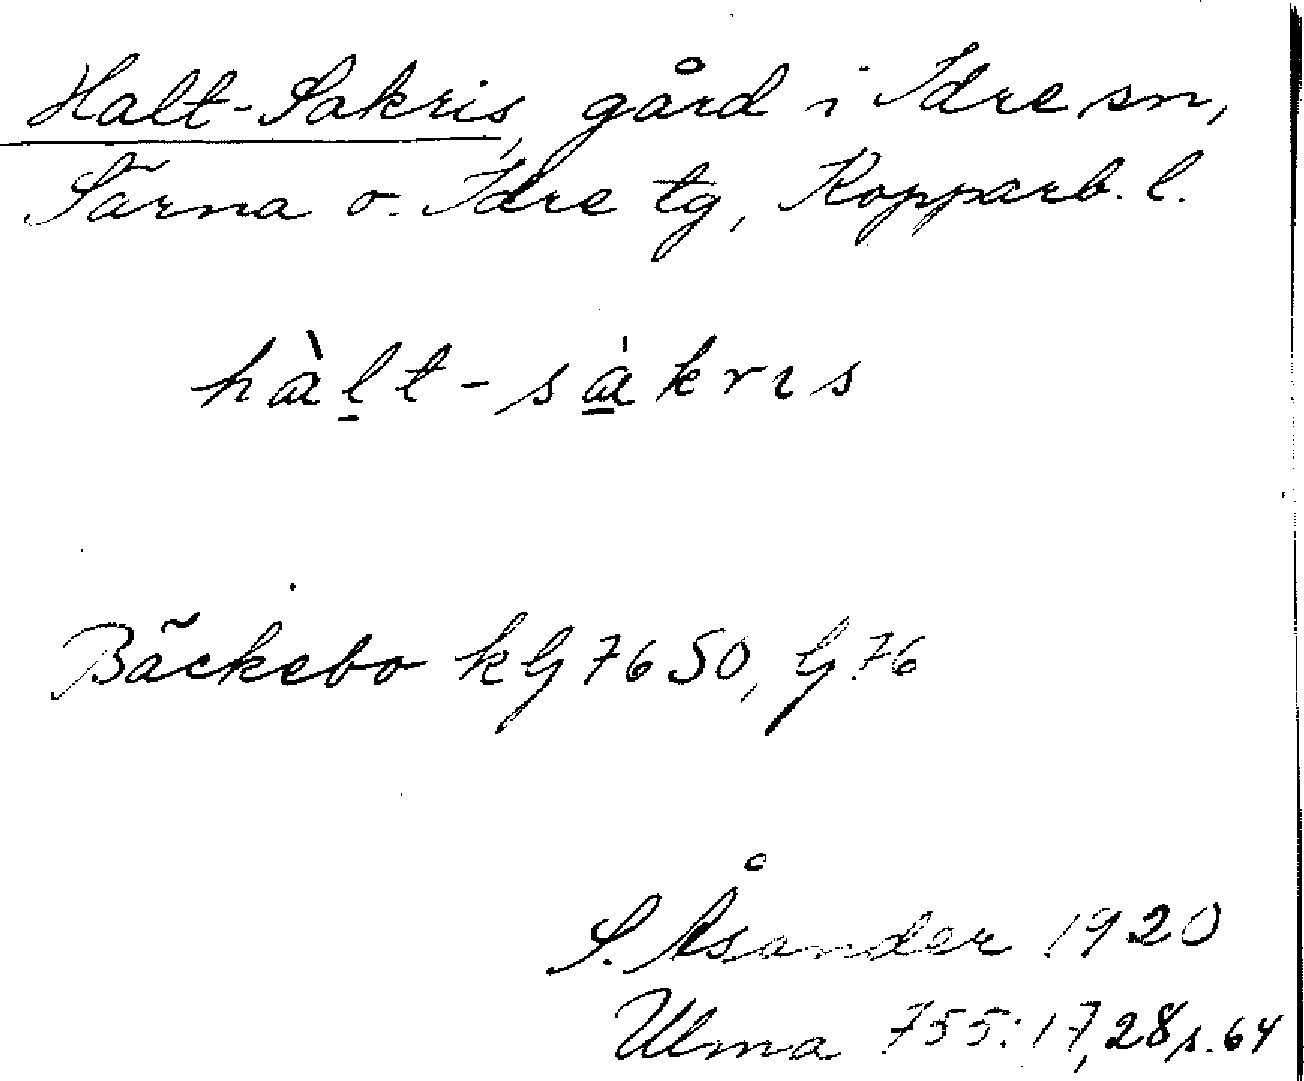 Halt-Sakris, gård i Idre sn,
Särna o. Idre tg, Kopparb. l.
hàl̠t-sa̠̍krıs
Bäckebo kG 7650, G 76
S. Åsander 1920
Ulma 755:17, 28 s. 64